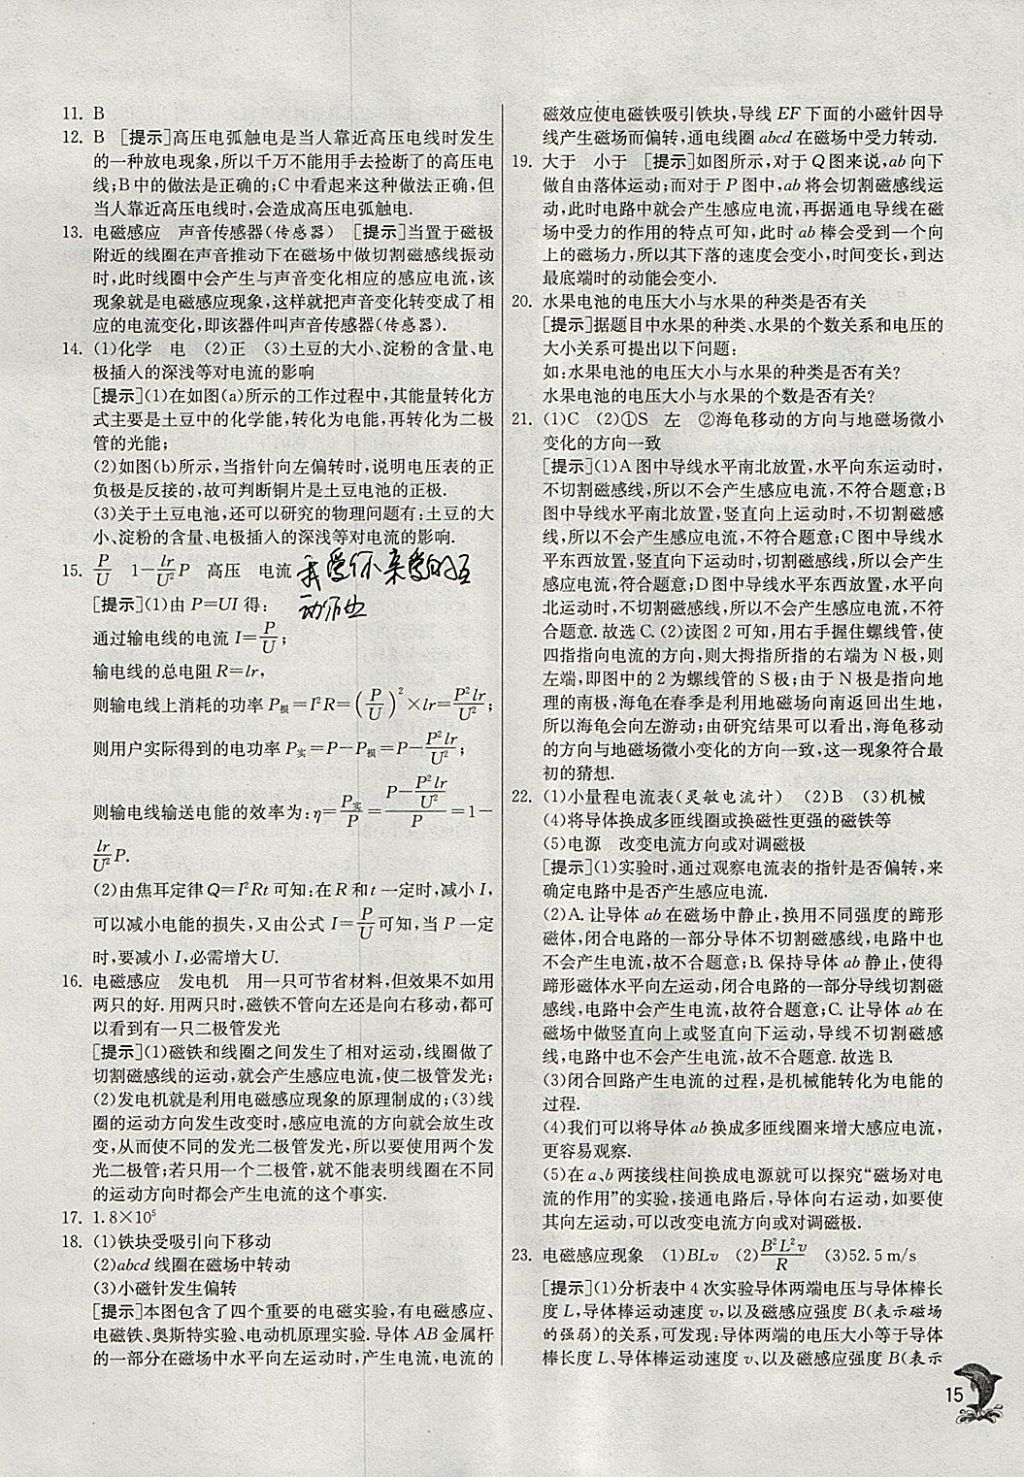 11. B
12. B [提示]高压电弧触电是当人靠近高压电线时发生
的一种放电现象,所以千万不能用手去捡断了的高压电
线;B中的做法是正确的;C中看起来这种做法正确,但
当人靠近高压电线时,会造成高压电弧触电.
13. 电磁感应 声音传感器(传感器) [提示]当置于磁极
附近的线圈在声音推动下在磁场中做切割磁感线振动
时,此时线圈中会产生与声音变化相应的感应电流,该
现象就是电磁感应现象,这样就把声音变化转变成了相
应的电流变化,即该器件叫声音传感器(传感器).
14. (1)化学 电 (2)正 (3)土豆的大小、淀粉的含量、电
极插入的深浅等对电流的影响
[提示](1)在如图(a)所示的工作过程中,其能量转化方
式主要是土豆中的化学能,转化为电能,再转化为二极
管的光能;
(2)如图(b)所示,当指针向左偏转时,说明电压表的正
负极是反接的,故可判断铜片是土豆电池的正极.
(3)关于土豆电池,还可以研究的物理问题有:土豆的大
小、淀粉的含量、电极插入的深浅等对电流的影响.
15. P/U 1-lr/U²P 高压 电流 我爱你亲爱的互
动作业
[提示](1)由P=UI得:
通过输电线的电流I=P/U;
输电线的总电阻R=lr,
则输电线上消耗的功率P损=I²R=(P/U)²×lr=P²lr/U²;
则用户实际得到的电功率P实=P-P损=P-P²lr/U²;
则输电线输送电能的效率为:η=P实/P=(P-P²lr/U²)/P=1-
lr/U²P.
(2)由焦耳定律Q=I²Rt可知:在R和t一定时,减小I,
可以减小电能的损失,又由公式I=P/U可知,当P一定
时,要减小I,必需增大U.
16. 电磁感应 发电机 用一只可节省材料,但效果不如用
两只的好.用两只时,磁铁不管向左还是向右移动,都可
以看到有一只二极管发光
[提示](1)磁铁和线圈之间发生了相对运动,线圈做了
切割磁感线的运动,就会产生感应电流,使二极管发光;
(2)发电机就是利用电磁感应现象的原理制成的;(3)线
圈的运动方向发生改变时,感应电流的方向就会发生改
变,从而使不同的发光二极管发光,所以要使用两个发
光二极管;若只用一个二极管,就不能表明线圈在不同
的运动方向时都会产生电流的这个事实.
17. 1.8×10⁵
18. (1)铁块受吸引向下移动
(2)abcd线圈在磁场中转动
(3)小磁针发生偏转
[提示]本图包含了四个重要的电磁实验,有电磁感应、
电磁铁、奥斯特实验、电动机原理实验.导体AB金属杆
的一部分在磁场中水平向左运动时,产生电流,电流的
磁效应使电磁铁吸引铁块,导线EF下面的小磁针因导
线产生磁场而偏转,通电线圈abcd在磁场中受力转动.
19. 大于 小于 [提示]如图所示,对于Q图来说,ab向下
做自由落体运动;而对于P图中,ab将会切割磁感线运
动,此时电路中就会产生感应电流,再据通电导线在磁
场中受力的作用的特点可知,此时ab棒会受到一个向
上的磁场力,所以其下落的速度会变小,时间变长,到达
最底端时的动能会变小.
20. 水果电池的电压大小与水果的种类是否有关
[提示]据题目中水果的种类、水果的个数关系和电压的
大小关系可提出以下问题:
如:水果电池的电压大小与水果的种类是否有关?
水果电池的电压大小与水果的个数是否有关?
21. (1)C (2)①S 左 ②海龟移动的方向与地磁场微小
变化的方向一致
[提示](1)A图中导线水平南北放置,水平向东运动时,
不切割磁感线,所以不会产生感应电流,不符合题意;B
图中导线水平南北放置,竖直向上运动时,不切割磁感
线,所以不会产生感应电流,不符合题意;C图中导线水
平东西放置,竖直向下运动时,切割磁感线,所以会产生
感应电流,符合题意;D图中导线水平东西放置,水平向
北运动时,不切割磁感线,所以不会产生感应电流,不符
合题意.故选C.(2)读图2可知,用右手握住螺线管,使
四指指向电流的方向,则大拇指所指的右端为N极,则
左端,即图中的2为螺线管的S极;由于N极是指向地
理的南极,海龟在春季是利用地磁场向南返回出生地,
所以海龟会向左游动;由研究结果可以看出,海龟移动
的方向与地磁场微小变化的方向一致,这一现象符合最
初的猜想.
22. (1)小量程电流表(灵敏电流计) (2)B (3)机械
(4)将导体换成多匝线圈或换磁性更强的磁铁等
(5)电源 改变电流方向或对调磁极
[提示](1)实验时,通过观察电流表的指针是否偏转,来
确定电路中是否产生感应电流.
(2)A.让导体ab在磁场中静止,换用不同强度的蹄形
磁体,闭合电路的一部分导体不切割磁感线,电路中也
不会产生电流,故不合题意;B.保持导体ab静止,使得
蹄形磁体水平向左运动,闭合电路的一部分导线切割磁
感线,电路中会产生电流,故符合题意;C.让导体ab在
磁场中做竖直向上或竖直向下运动,导线不切割磁感
线,电路中也不会产生电流,故不合题意.故选B.
(3)闭合回路产生电流的过程,是机械能转化为电能的
过程.
(4)我们可以将导体ab换成多匝线圈来增大感应电流,
更容易观察.
(5)在a、b两接线柱间换成电源就可以探究“磁场对电
流的作用”的实验,接通电路后,导体向右运动,如要使
其向左运动,可以改变电流方向或对调磁极.
23. 电磁感应现象 (1)BLv (2)B²L²v/R (3)52.5 m/s
[提示](1)分析表中4次实验导体两端电压与导体棒长
度L,导体棒运动速度v,以及磁感应强度B(表示磁场
的强弱)的关系,可发现:导体两端的电压大小等于导体
棒长度L、导体棒运动速度v、以及磁感应强度B(表示
15